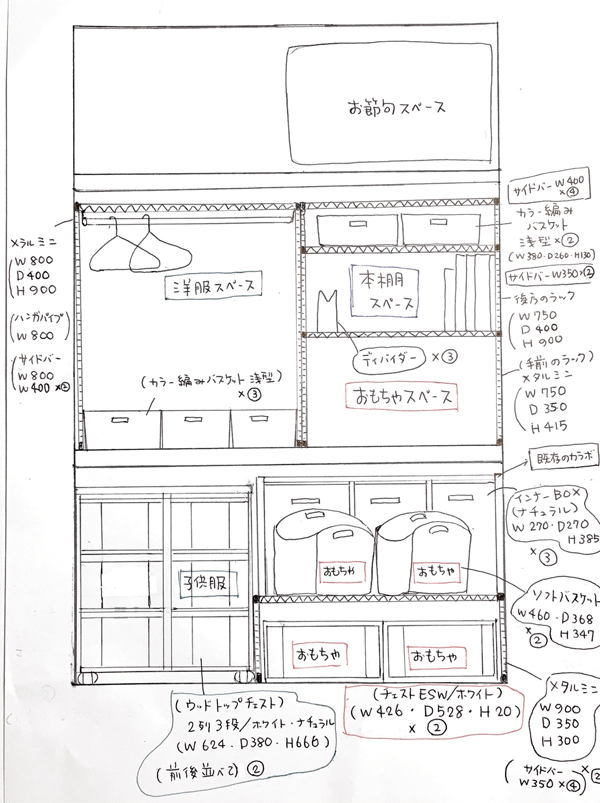 お節句スペース
サイドバー W400
×④
カラー編み
バスケット
浅型×②
(W380・D260・H130)
サイドバーW350×②
後方のラック
W750
D400
H900
(手前のラック)
メタルミニ
W750
D350
H415
メタルミニ
W800
D400
H900
(ハンガパイプ)
W800
(サイドバー
W800
W400×②
洋服スペース
本棚
スペース
ディバイダー ×③
(カラー編みバスケット浅型)
×③
おもちゃスペース
既存のカラボ
インナーBOX
(ナチュラル)
W270・D270
H385
×③
子供服
おもちゃ
おもちゃ
ソフトバスケット
W460・D368
H347
×②
おもちゃ
おもちゃ
(ウッドトップチェスト)
2列3段/ホワイト・ナチュラル
(W624・D380・H660)
(前後並べて) ②
(チェストESW/ホワイト)
(W426・D528・H20)
×②
メタルミニ
W900
D350
H300
(サイドバー
W350×④
×②